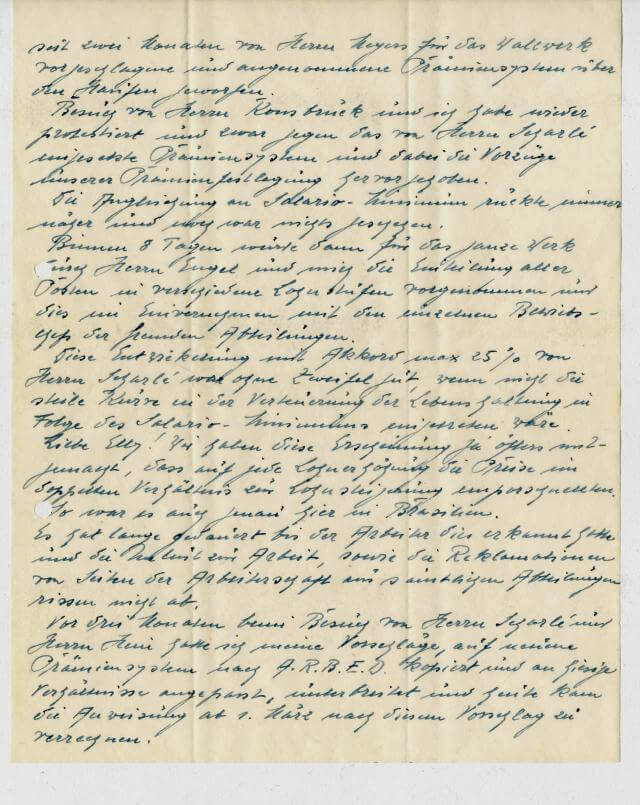 seit zwei Monaten von Herrn Meyers für das Walzwerk
vorgeschlagene und angenommene Prämiensystem über
den Haufen geworfen.
Besuch von Herrn Konsbrück und ich habe wieder
protestiert und zwar gegen das von Herrn Scharlé
eingesetzte Prämiensystem und dabei die Vorzüge
unserer Prämienfestlegung hervorgehoben.
Die Angleichung an Salario-Minimum rückte immer
näher und noch war nichts geschehen.
Binnen 8 Tagen wurde dann für das ganze Werk
durch Herrn Engel und mich die Einteilung aller
Posten in verschiedene Lohnstufen vorgenommen und
dies im Einvernehmen mit den einzelnen Betriebs-
chefs der fremden Abteilungen.
Diese Entwickelung mit Akkord max 25% von
Herrn Scharlé war ohne Zweifel gut, wenn nicht die
steile Kurve in der Verteuerung der Lebenshaltung in
Folge des Salario-Minimums eingetreten wäre.
Liebe Elly! Wir haben diese Erscheinung ja öfters mit-
gemacht, dass auf jede Lohnerhöhung die Preise im
doppelten Verhältnis zur Lohnsteigerung emporschnellten.
So war es auch genau hier in Brasilien.
Es hat lange gedauert bis der Arbeiter dies erkannt hatte
und die Unlust zur Arbeit, sowie die Reklamationen
von Seiten der Arbeiterschaft aus sämtlichen Abteilungen
rissen nicht ab.
Vor drei Monaten beim Besuch von Herrn Scharlé und
Herrn Heni hatte ich meine Vorschläge, auf
Prämiensystem nach A.R.B.E.D. kopiert und an hiesige
Verhältnisse angepasst, unterbreitet und heute kam
die Anweisung ab 1. März nach diesem Vorschlag zu
verrechnen.